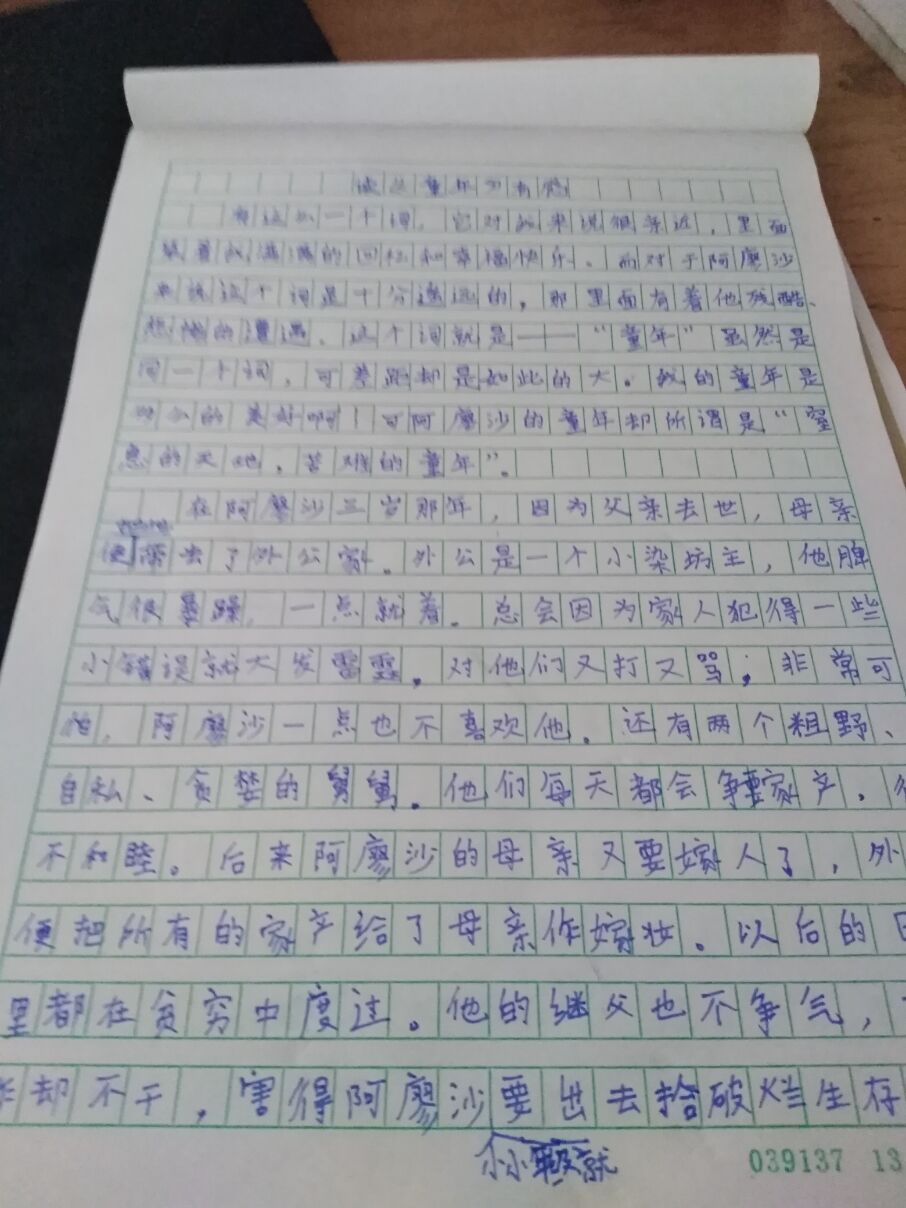 读《童年》有感
有这么一个词，它对我来说很亲近，里面
装着我满满的回忆和幸福快乐。而对于阿廖沙
来说这个词是十分遥远的，那里面有着他残酷、
悲惨的遭遇。这个词就是——“童年”虽然是
同一个词，可差距却是如此的大。我的童年是
那么的美好啊！可阿廖沙的童年却所谓是“窒
息的天地，苦难的童年”。
在阿廖沙三岁那年，因为父亲去世，母亲
便 去了外公家。外公是一个小染坊主，他脾
气很暴躁，一点就着。总会因为家人犯得一些
小错误就大发雷霆，对他们又打又骂，非常可
怕，阿廖沙一点也不喜欢他。还有两个粗野、
自私、贪婪的舅舅。他们每天都会争要家产，
不和睦。后来阿廖沙的母亲又要嫁人了，外
便把所有的家产给了母亲作嫁妆。以后的日
里都在贫穷中度过。他的继父也不争气，
却不干，害得阿廖沙要出去拾破烂生存
小小年级就
039137 13